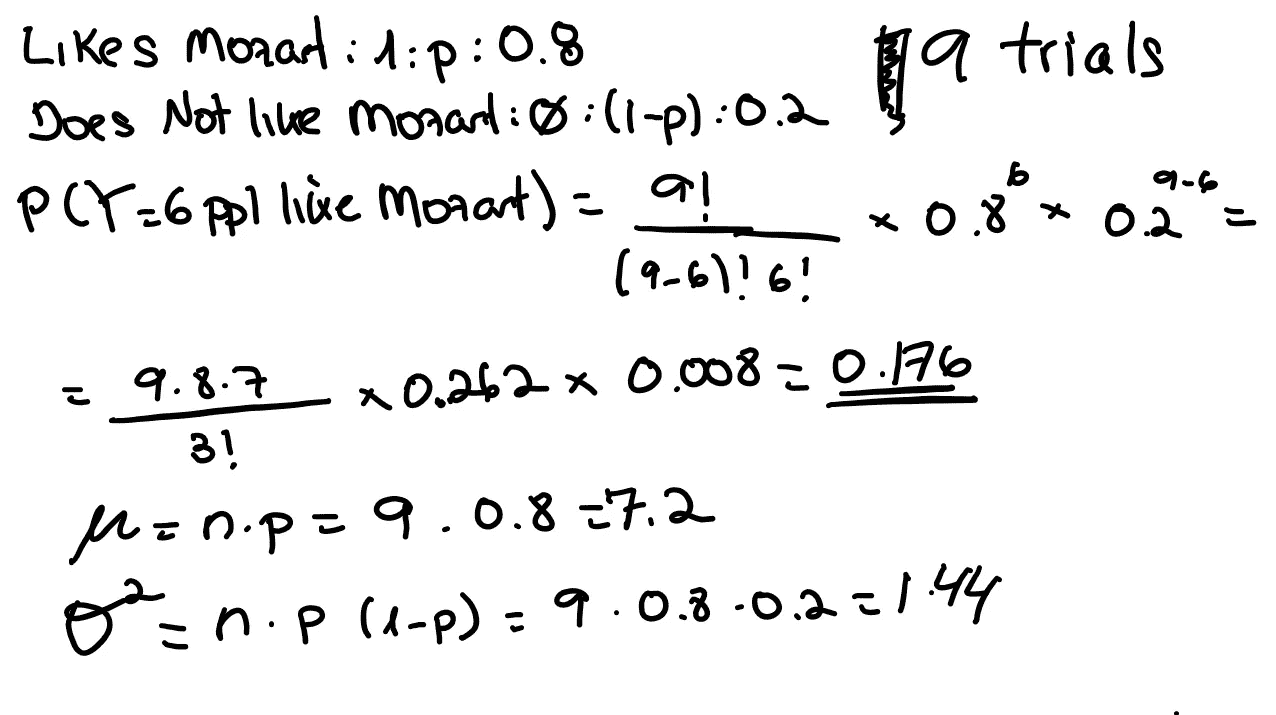 Likes Mozart : 1 : p : 0.8
9 trials
Does Not like Mozart : Ø : (1-p) : 0.2
P(Y=6 ppl like Mozart) = 9! / (9-6)! 6! × 0.8^6 × 0.2^9-6 =
= 9·8·7 / 3! × 0.262 × 0.008 = 0.176
μ = n·p = 9 · 0.8 = 7.2
σ² = n · p (1-p) = 9 · 0.8 · 0.2 = 1.44